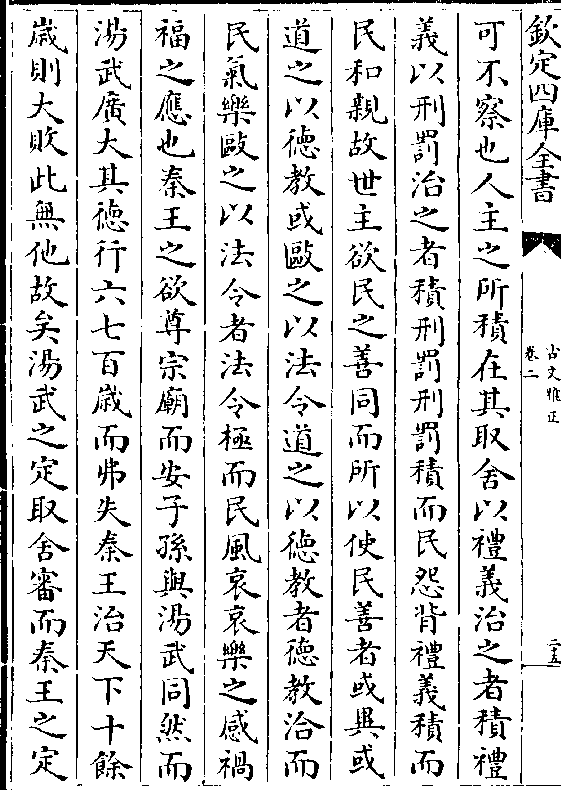 欽定四庫全書
古文雅正
卷二
二十五
可不察也人主之所積在其取舍以禮義治之者積禮
義以刑罰治之者積刑罰刑罰積而民怨背禮義積而
民和親故世主欲民之善同而所以使民善者或異或
道之以德教或毆之以法令道之以德教者德教洽而
民氣樂毆之以法令者法令極而民風哀哀樂之感禍
福之應也秦王之欲尊宗廟而安子孫與湯武同然而
湯武廣大其德行六七百歲而弗失秦王治天下十餘
歲則大敗此無他故矣湯武之定取舍審而秦王之定